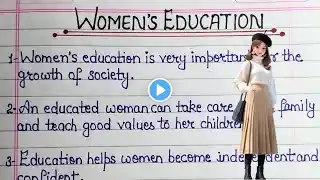 WOMEN'S EDUCATION
1- Women's education is very important for the
growth of society.
2- An educated woman can take care family
and teach good values to her children
3- Education helps women become independent and
confident.